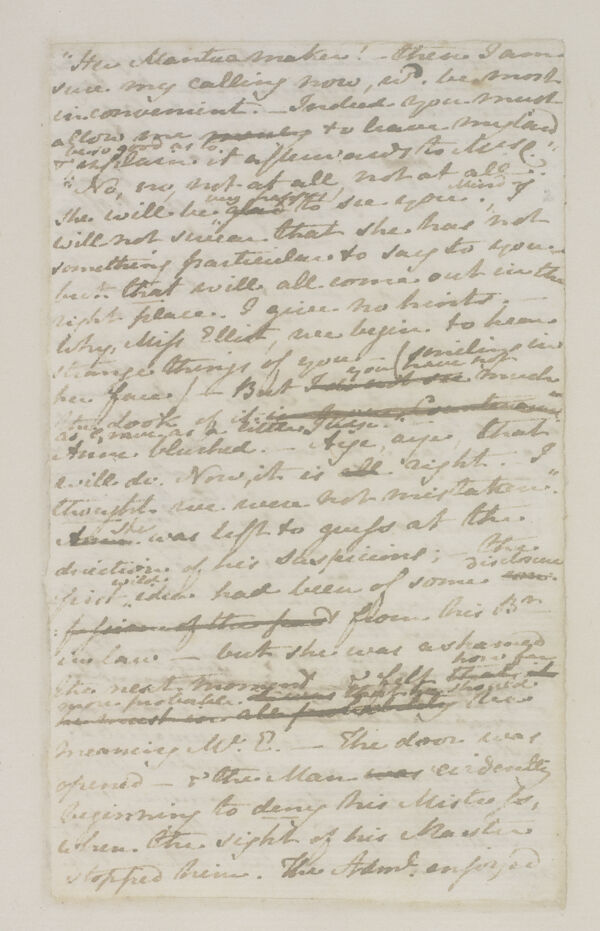 "Her Mantuamaker! – then I am
sure my calling now, wd. be most
inconvenient. – Indeed you must
allow me to leave my Card
& be so good as to
explain it afterwards to Mrs. C."
"No, no, not at all, not at all.
very happy
She will be glad to see you. Mind – I
will not swear that she has not
something particular to say to you –
but that will all come out in the
right place. I give no hints. –
Why, Miss Elliot, we begin to hear
strange things of you – (smiling in
you have not
her face) – But I do not see much
the look of it
as grave as a little Judge."
Anne blushed. – Aye, aye, that
will do. Now, it is all right. I
thought we were not mistaken."
She
Anne was left to guess at the
direction of his suspicions; – the
wild disclosure
first idea had been of some
from his Br.
in law – but she was ashamed
how far
the next moment – & felt that it
more probable that he should be
he must in all probability
meaning Mr. E. – The door was
opened – & the Man was evidently
beginning to deny his Mistress,
when the sight of his Master
stopped him. The Adml. enjoyed